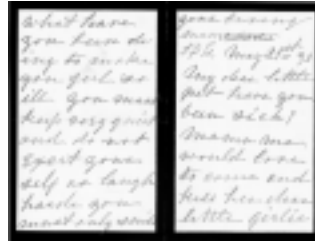 What have
you been do
ing to make
you girl so
ill you must
keep very quiet
and do not
exert your
self or laugh
hard you
must only smile
your loving
My dear little
pet have you
been sick?
Mama
would love
to come and
kiss her dear
little girlie